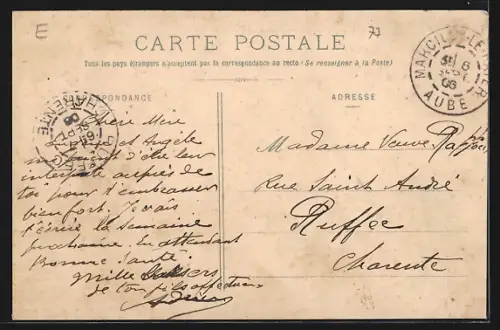 E
77
CARTE POSTALE
Tous les pays étrangers n'acceptent pas la correspondance au recto (Se renseigner à la Poste)
PONDANCE
ADRESSE
MARCILLY-LE-
AUBE
6
SEPT
06
CHARENTE
RUFFEC
Chère Mère
et Angèle
d'être leur
interprète auprès de
toi pour t'embrasser
bien fort. Je vais
t'écrire la semaine
prochaine. En attendant
Bonne Santé.
Mille baisers
de ton fils affectueux
Madame Veuve
Rue Saint André
Ruffec
Charente